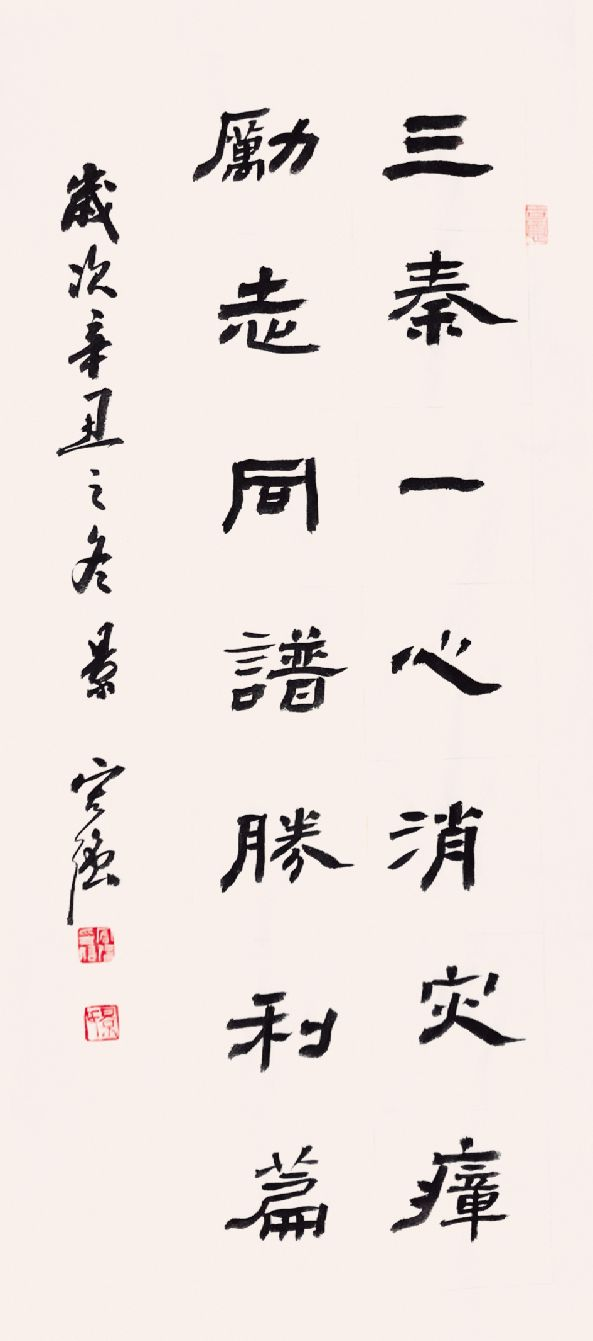 三秦一心消灾瘴
勵志同譜勝利篇
歲次辛丑之冬景